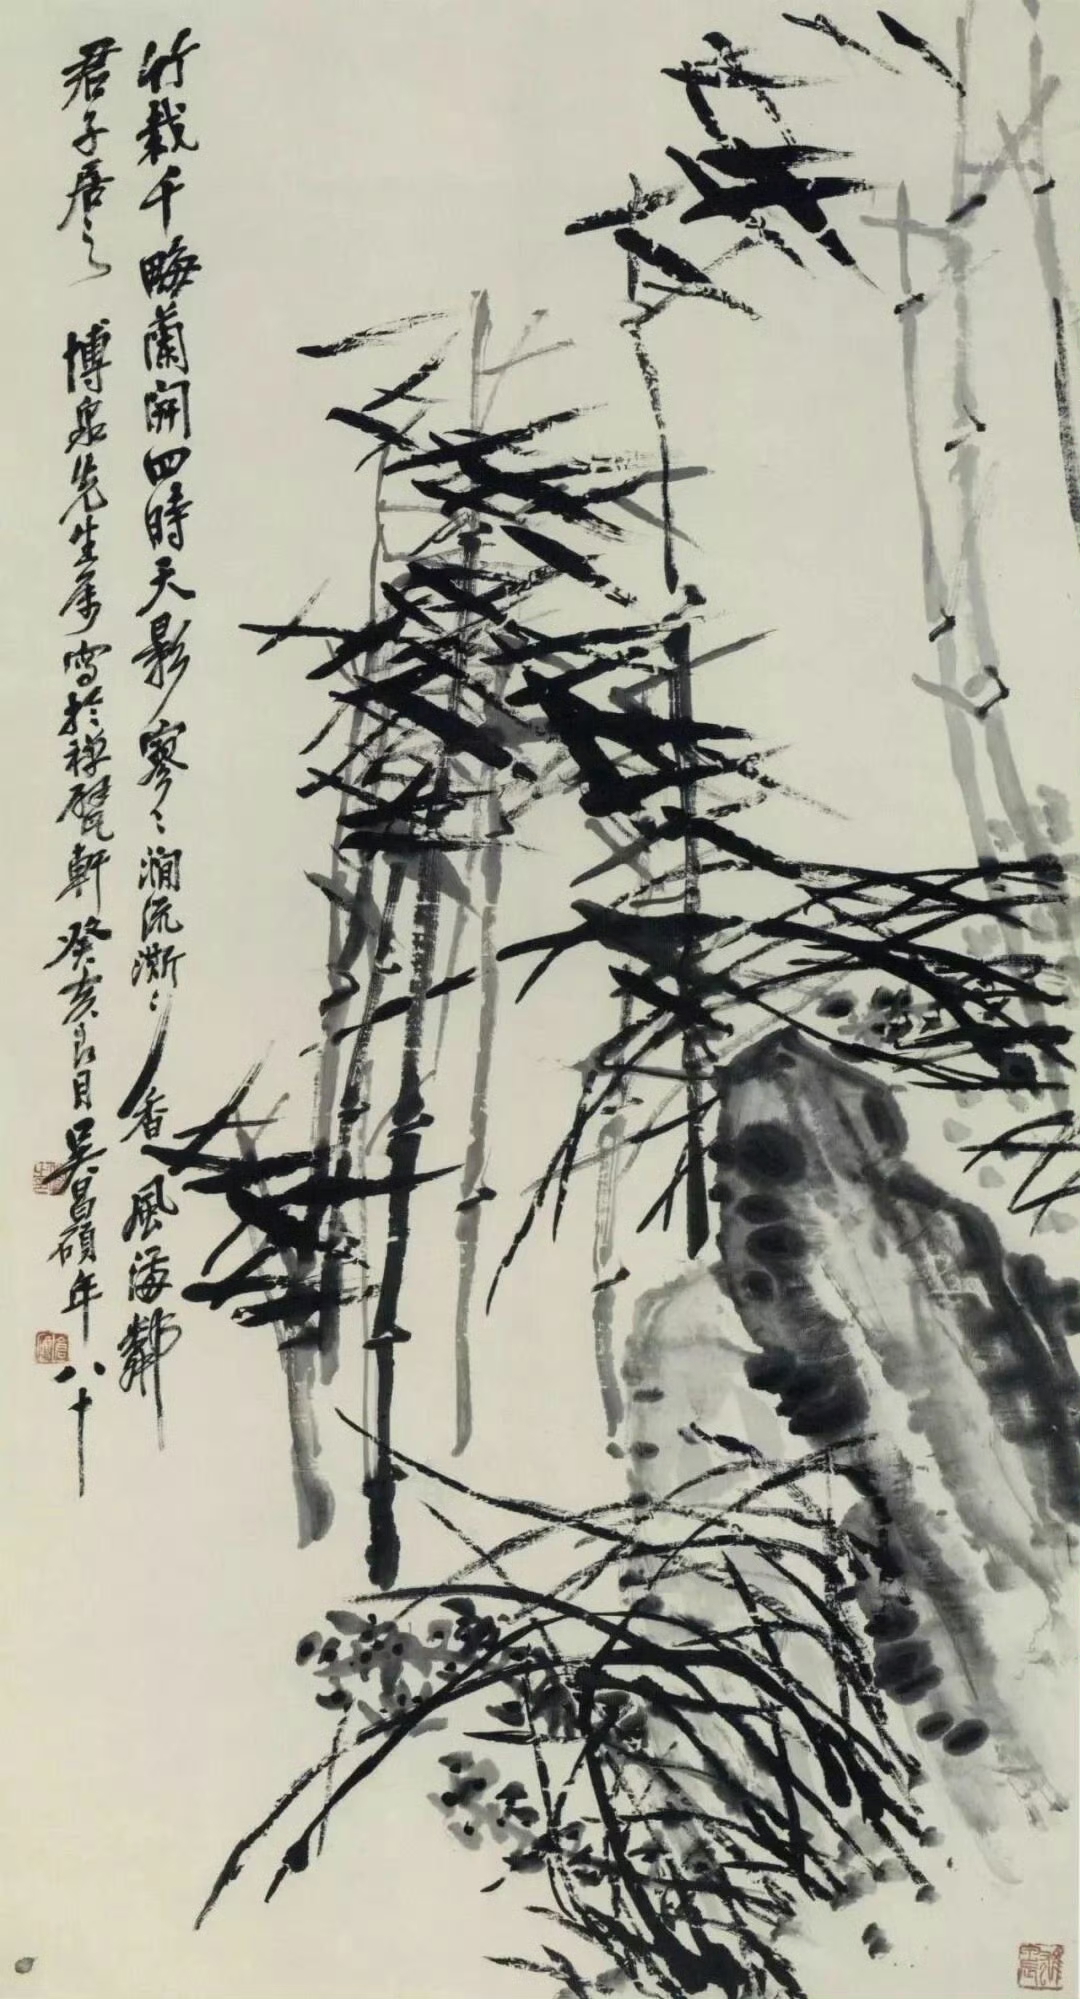 竹栽千畮蘭開四時天影寥〻澗流澌〻香風滿鄰
君子居之 博泉先生属寫於禪甓軒癸亥良月吳昌碩年八十